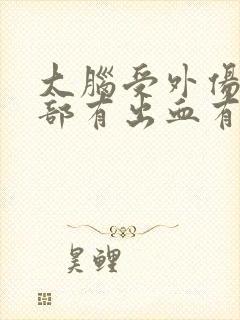 大腦受外傷
部有出血有
昊鲤